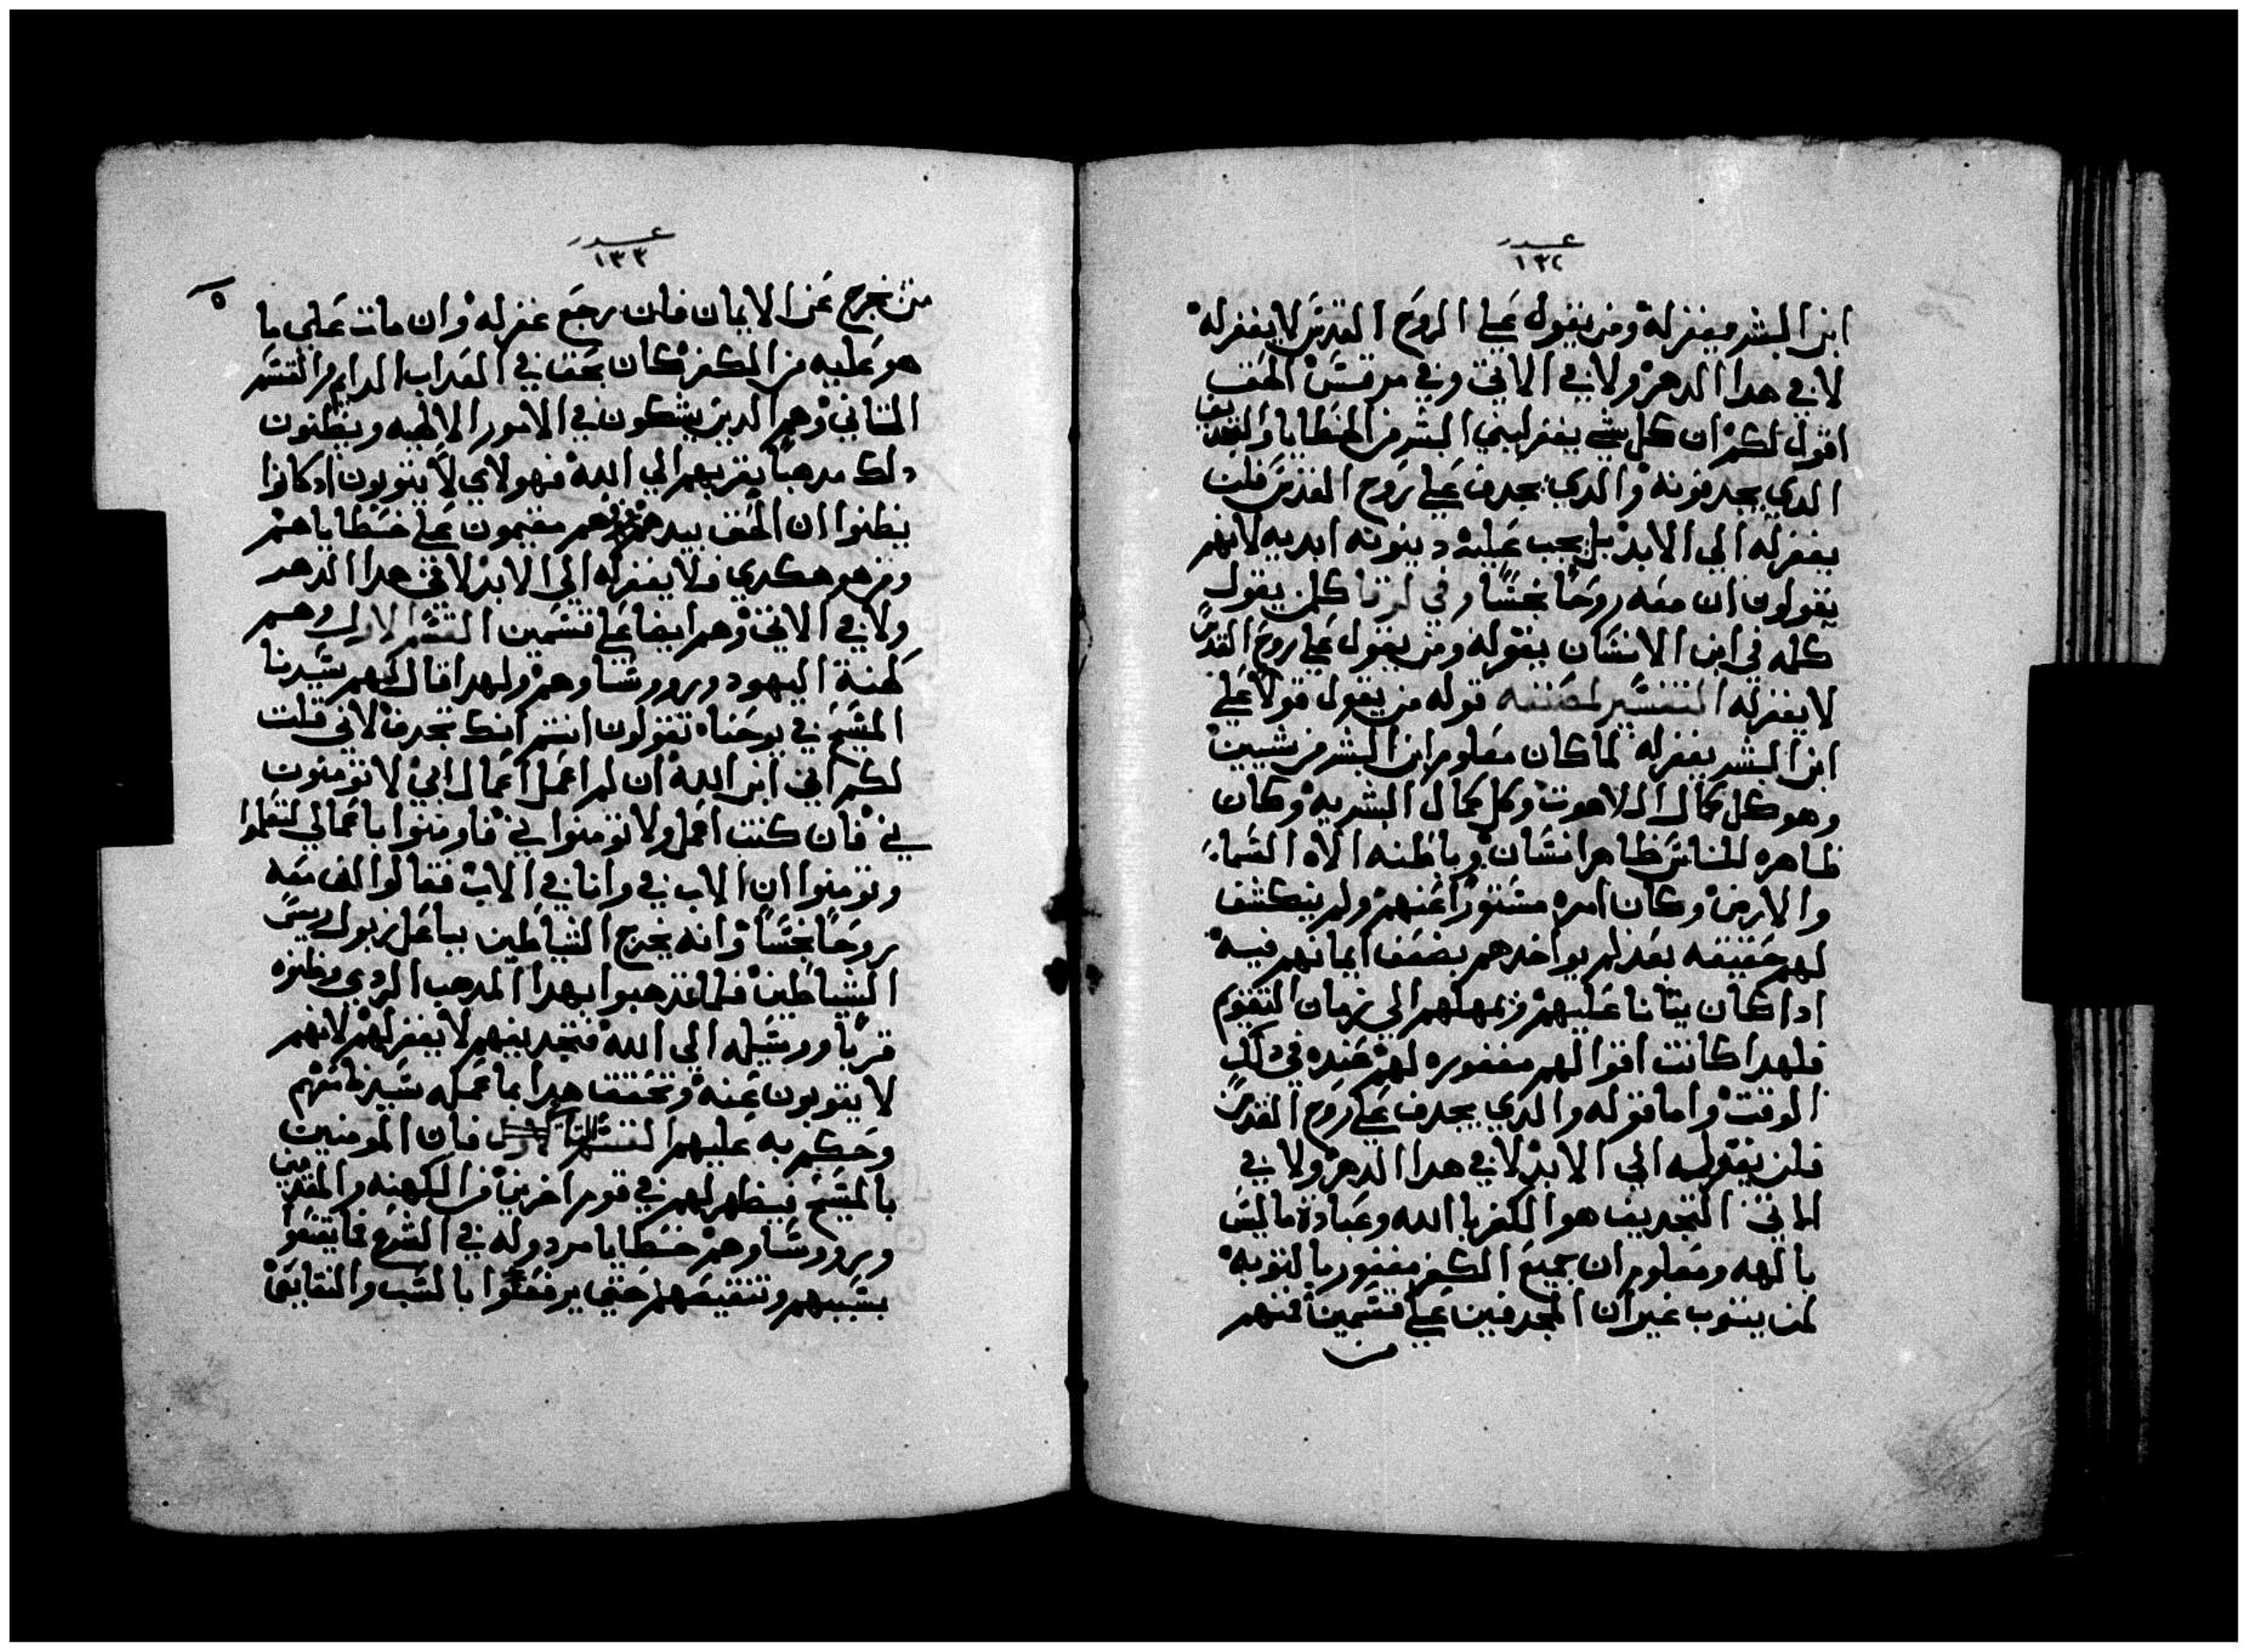 عدد
١٣٢
ابن البشر يغفر له ومن يقول علي الروح القدس لا يغفر له
لا في هدا الدهر ولا في الاتي وفي مرقس الحق
اقول لكم ان كل شي يغفر لبني البشر من الخطايا والتجديف
الدي يجدفونه والدي يجدف علي روح القدس فلن
يغفر له الي الابد بل يجب عليه دينونه ابديه لانهم
يقولون ان معه روحًا نجسًا وفي لوقا كلمن يقول
كلمه في ابن الانسان يغفر له ومن يقول علي روح القدس
لا يغفر له التفسير لمصنفه قوله من يقول قولًا علي
ابن البشر يغفر له لما كان معلوم ابن البشر من شيين
وهو كل كمال اللاهوت وكل كمال البشريه وكان
ظاهره للناس ظاهر انسان وباطنه الاه السماء
والارض وكان امره مستورًا عنهم ولم ينكشف
لهم حقيقته بعد لم يواخدهم بضعف ايمانهم فيه
ادا كان يتانا عليهم ويمهلهم الي زمان التقويم
فلهدا كانت اقوالهم مغفوره لهم عنده في دلك
الوقت واما قوله والدي يجدف علي روح القدس
فلن يغفر له الي الابد لا في هدا الدهر ولا في
الاتي التجديف هو الكفر باالله وعبادة ما ليس
بالهه ومعلوم ان جميع الكفر مغفور بالتوبه
لمن يتوب غير ان المجدفين علي قسمين فمنهم
من
عدد
١٣٣
٥
من خرج عن الايمان فان رجع غفر له وان مات علي ما
هو عليه من الكفر كان بحق في العداب الدايم والقسم
التاني وهم الدين يشكون في الامور الالهيه ويظنون
دلك مدهبًا يقربهم الي الله فهولاي لا يتوبون ادكانوا
يظنوا ان الحق بيدهم وهم مقيمون علي خطاياهم
ومن هو هكدي فلا يغفر له الي الابد لا في هدا الدهر
ولا في الاتي وهم ايضا علي قسمين القسم الاول وهم
كهنة اليهود وروساوهم ولهدا قال لهم سيدنا
المسيح في يوحنا تقولون انتم انك تجدف لاني قلت
لكم اني ابن الله ان لم اعمل اعمال ابي لا تومنون
بي فان كنت اعمل ولا تومنوا بي فاومنوا باعمالي لتعلموا
وتومنوا ان الاب في وانا في الاب فقالوا ان معه
روحًا نجسًا وانه يخرج الشياطين بباعل زبول رييس
الشياطين فلما تمدهبوا بهدا المدهب الردي وظنوه
قربًا ووسيله الي الله فتجديفهم لا يغفر لهم لانهم
لا يتوبون عنه وتحقق هدا بما عمله سيدنا معهم
وحكم به عليهم القسم فان المومنين
بالمسيح فيظهر لهم في قوم اخرين من الكهنه والمقدمين
وروساوهم خطايا مردوله في الشرع فما يتقوا
بسببهم وتنقيصهم حتي يرفعوا بالسب والنقايص